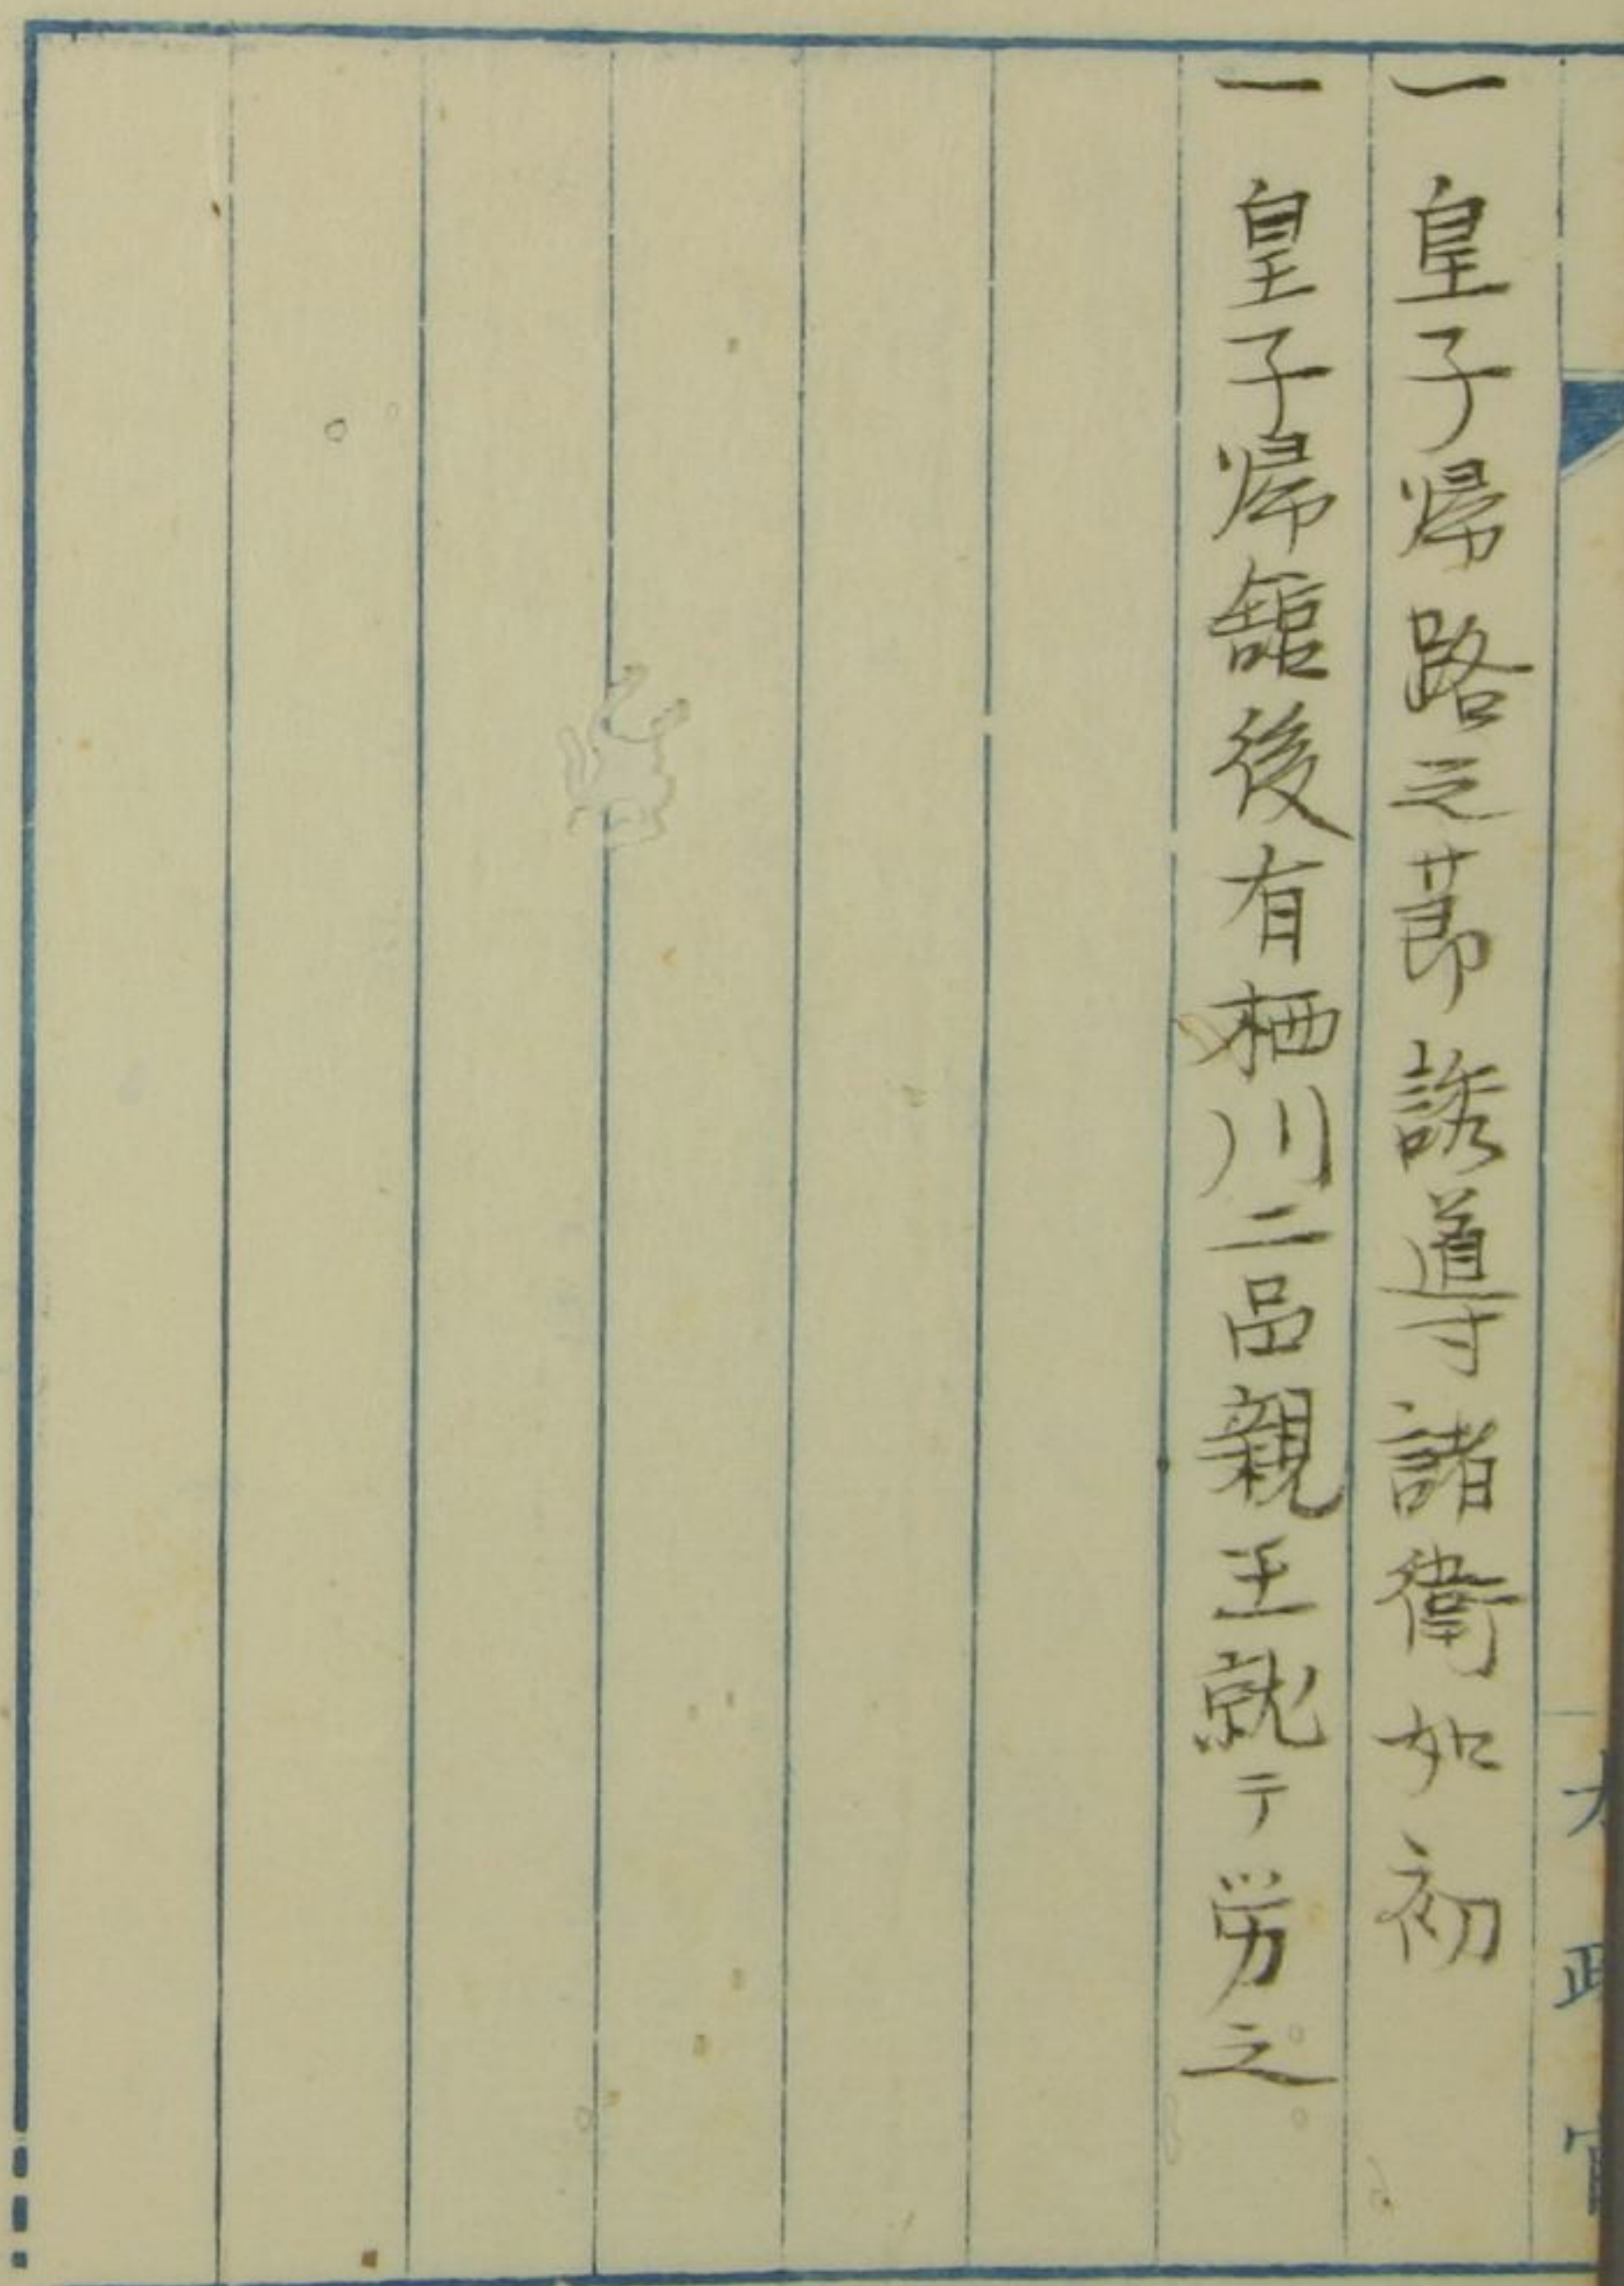 一皇子帰路之節誘導諸衛如初
一皇子帰舘後有栖川二品親王就テ労之
太政官